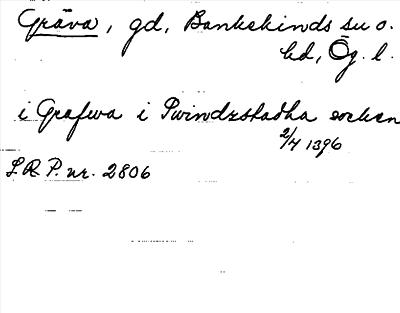 Gräva, gd, Bankekinds sn o.
hd, Ög. l.
i Grafwa i Swindzstadha socken
2/4 1396
S.R.P. nr. 2806